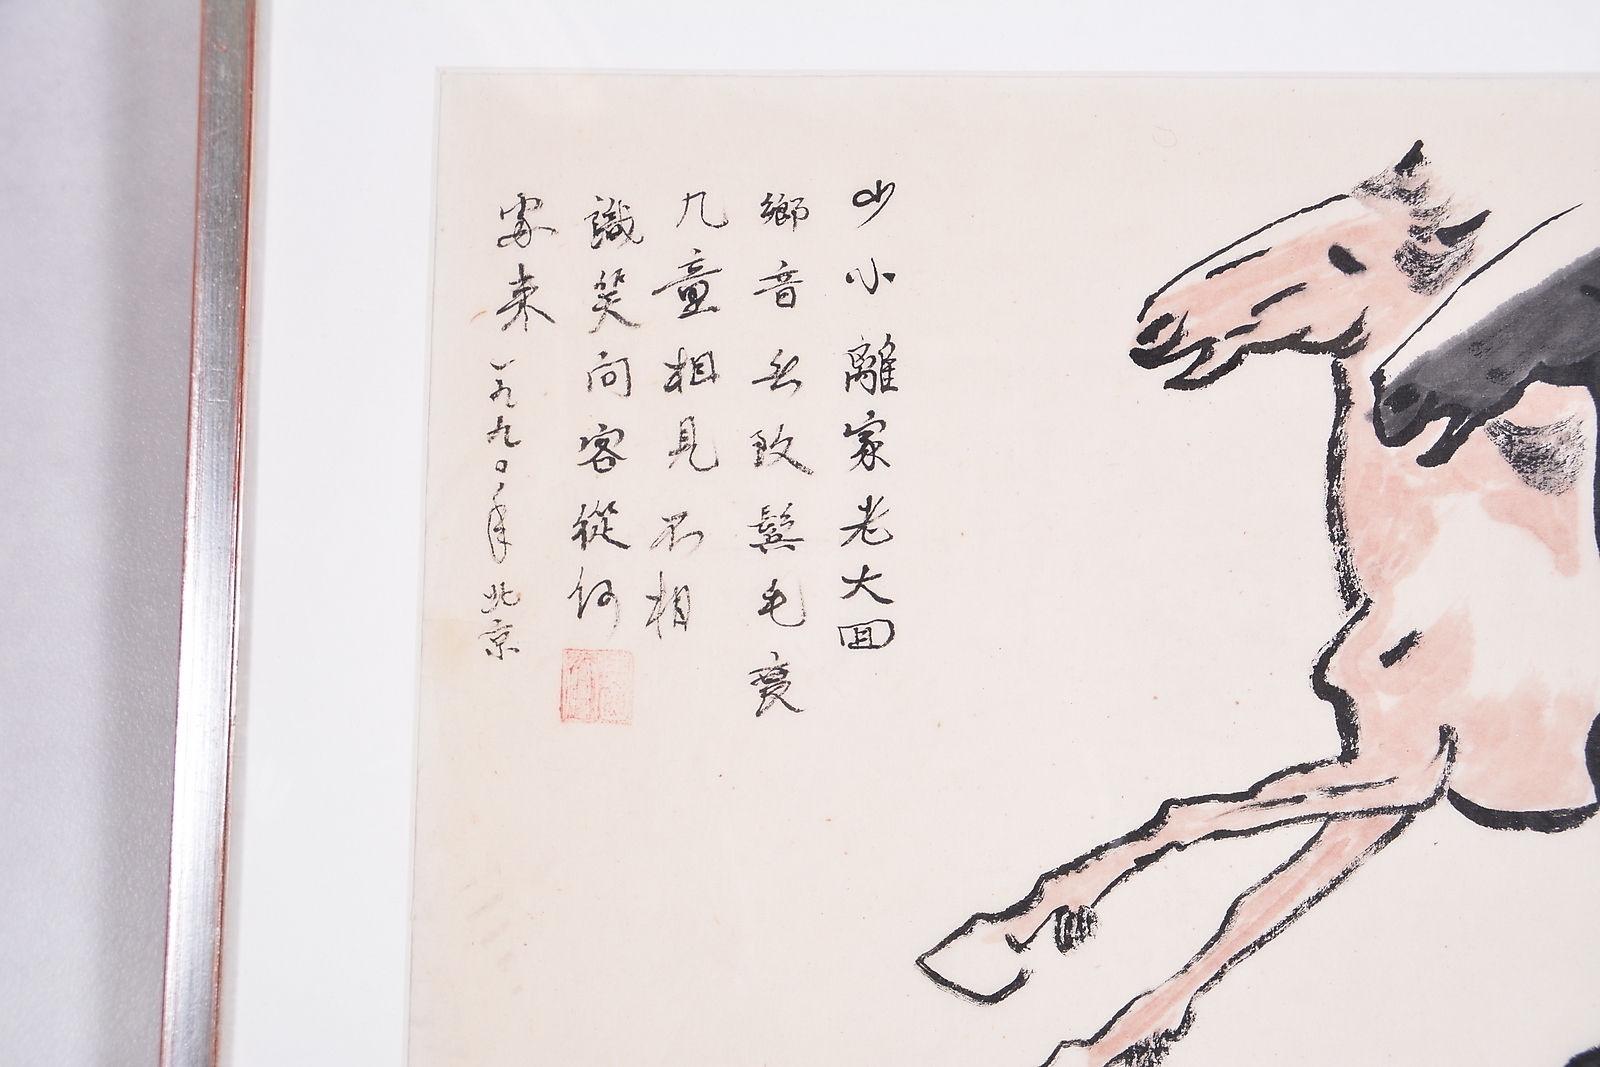 少小離家老大回
鄉音無改鬢毛衰
兒童相見不相
識笑问客從何
處来 一九九〇年北京